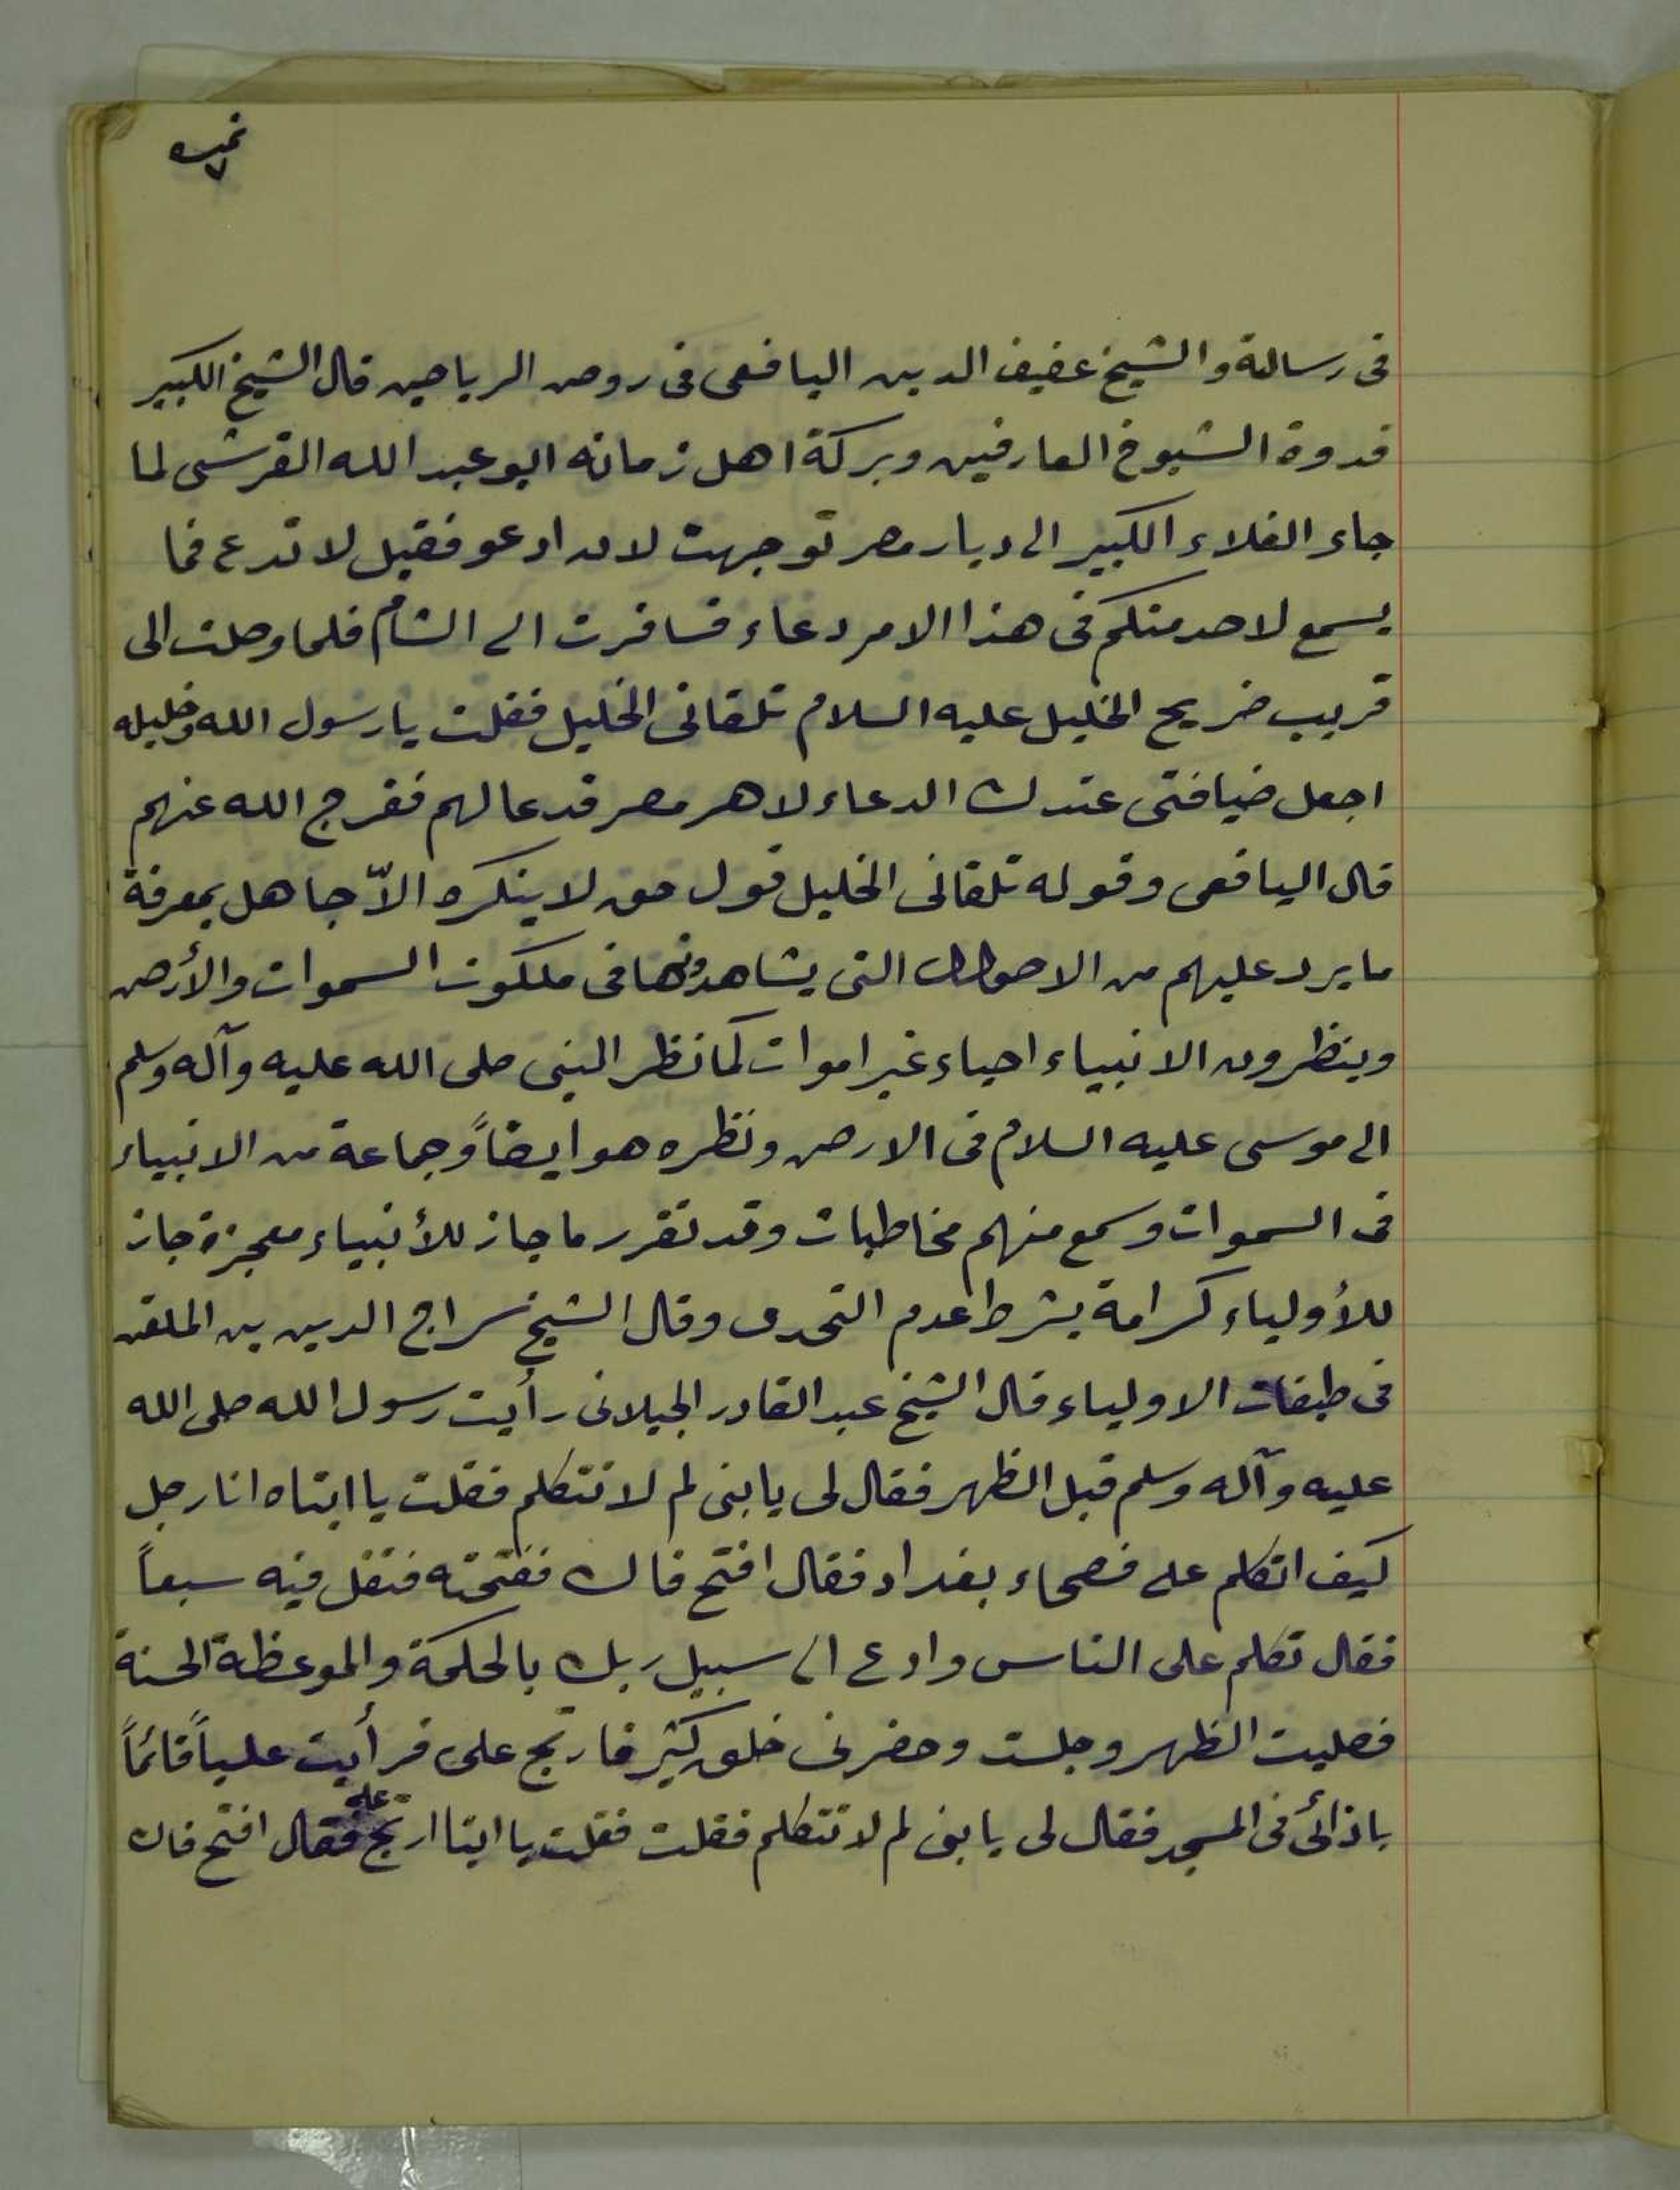 نمره
٧
فى رسالة والشيخ عفيف الدين اليافعى فى روض الرياحين قال الشيخ الكبير
قدوة الشيوخ العارفين وبركة اهل زمانه ابو عبد الله القرشى لما
جاء الغلاء الكبير الى ديار مصر توجهت لان ادعو فقيل لا تدع فما
يسمع لاحد منكم فى هذا الامر دعاء فسافرت الى الشام فلما وصلت الى
قريب ضريح الخليل عليه السلام تلقانى الخليل فقلت يا رسول الله وخليله
اجعل ضيافتى عندك الدعاء لاهر مصر فدعا لهم ففرج الله عنهم
قال اليافعى وقوله تلقانى الخليل قول حق لا ينكره الاّ جاهل بمعرفة
ما يرد عليهم من الاحوال التى يشاهدونها فى ملكوت السموات والأرض
وينظرون الانبياء احياء غير اموات كما نظر النبى صلى الله عليه وآله وسلم
الى موسى عليه السلام فى الارض ونظره هو ايضاً وجماعة من الانبياء
فى السموات وسمع منهم مخاطبات وقد تقرر ما جاز للأنبياء معجزة جاز
للأولياء كرامة بشرط عدم التحدى وقال الشيخ سراج الدين بن الملقن
فى طبقات الاولياء قال الشيخ عبد القادر الجيلانى رأيت رسول الله صلى الله
عليه وآله وسلم قبل الظهر فقال لى يا بنى لم لا تتكلم فقلت يا ابتاه انا رجل
كيف اتكلم على فصحاء بغداد فقال افتح فاك ففتحته فتفل فيه سبعاً
فقال تكلم على الناس وادع الى سبيل ربك بالحكمة والموعظة الحسنة
فصليت الظهر وجلست وحضرنى خلق كثير فارتج على فرأيت علياً قائماً
باذائى فى المسجد فقال لى يا بنى لم لا تتكلم فقلت فقلت يا ابتا ارتج على فقال افتح فاك